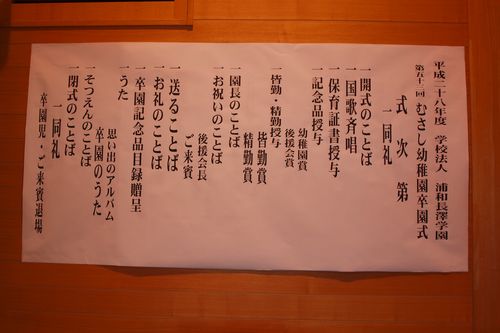 平成二十八年度 学校法人 浦和長澤学園
第五十一回 むさし幼稚園卒園式
式次第
一同礼
一開式のことば
一国歌斉唱
一保育証書授与
一記念品授与
幼稚園賞
後援会賞
一皆勤・精勤授与
皆勤賞
精勤賞
一園長のことば
一お祝いのことば
後援会長
ご来賓
一送ることば
一お礼のことば
一卒園記念品目録贈呈
一うた
思い出のアルバム
卒園のうた
一そつえんのことば
一閉式のことば
一同礼
卒園児・ご来賓退場